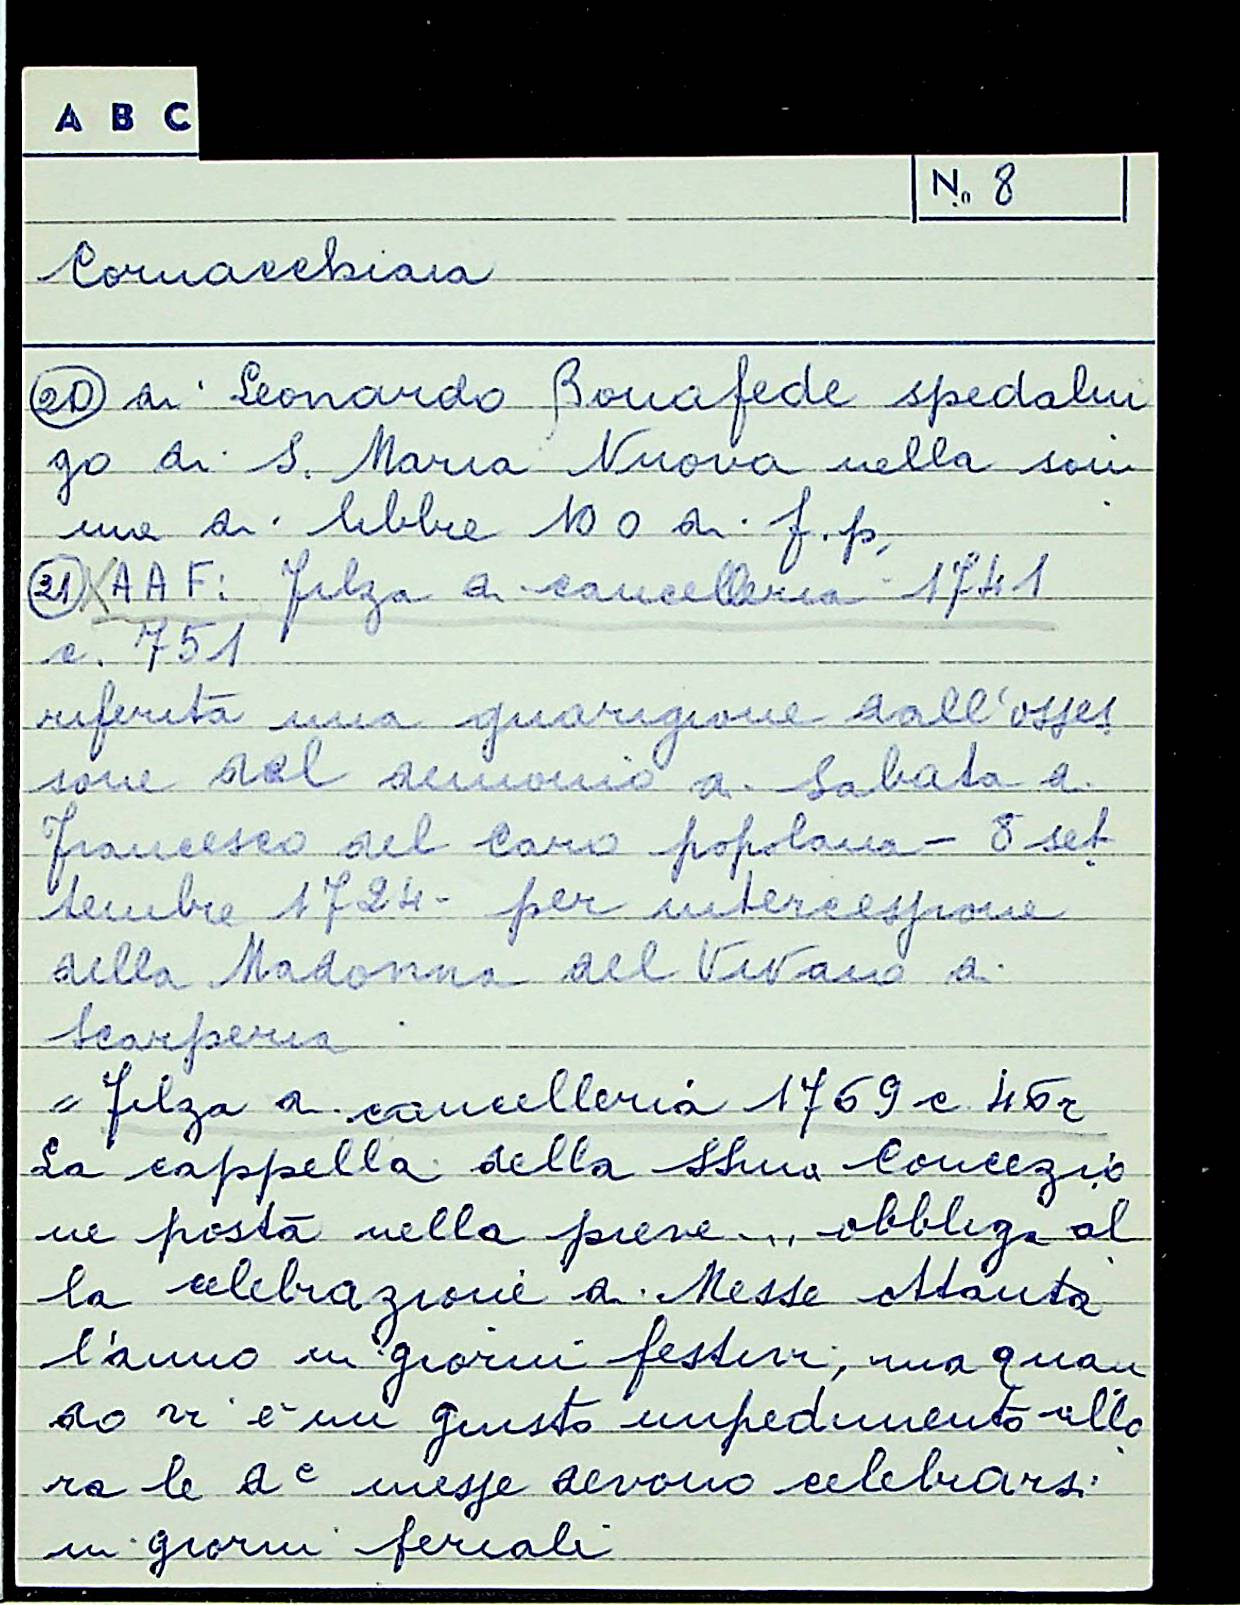 A B C
No 8
Cornacchiaia
20 di Leonardo Bonafede spedalin
go di S. Maria Nuova nella som
ma di libbre 100 di f.p.
21 X AAF: Filza di cancelleria 1741
c. 751
riferita una guarigione dall'osses
sone del demonio di Sabata di
Francesco del Caro popolana - 8 set
tembre 1724 - per intercessione
della Madonna del Vivaio di
Scarperia
" Filza di cancelleria 1769 c 46r
La cappella della SSma Concezio
ne posta nella pieve ... obbliga al
la celebrazione di Messe ottanta
l'anno in giorni festivi, ma quan
do vi è un giusto impedimento allo
ra le de messe devono celebrarsi
in giorni feriali